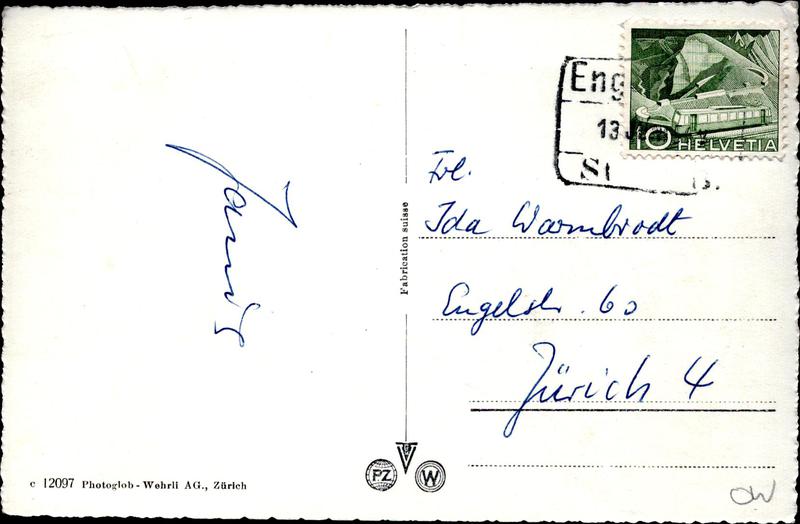 Eng
13 J
St
10 HELVETIA
Frl.
Ida Warmbrodt
Engelstr. 60
Zürich 4
Fabrication suisse
PZ W
c 12097 Photoglob-Wehrli AG., Zürich
OW